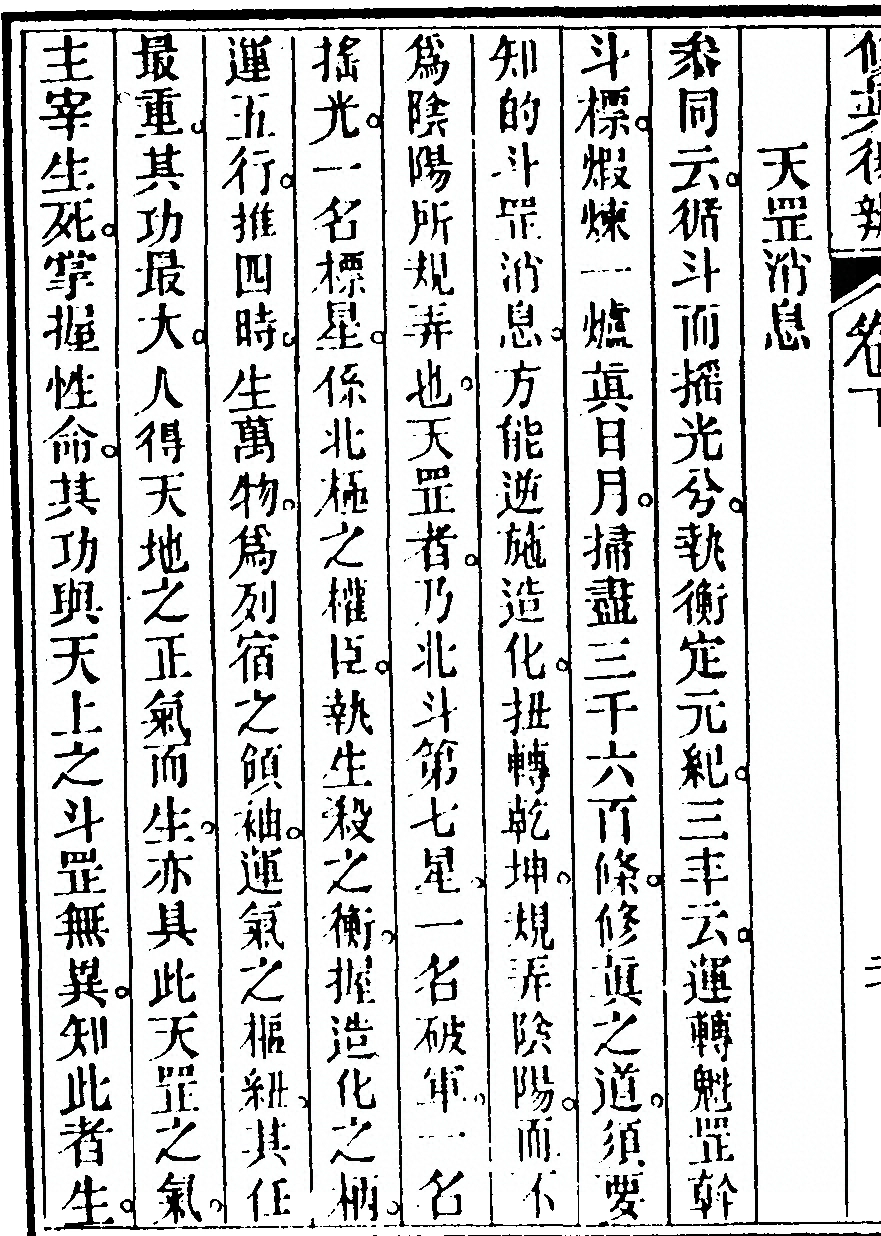 卷下
天罡消息
叅同云。循斗而搖光兮。執衡定元紀。三丰云。運轉魁罡斡
斗標。煆煉一爐眞日月。掃盡三千六百條。修眞之道。須要
知的斗罡消息。方能逆施造化。扭轉乾坤。規弄陰陽。而不
爲陰陽所規弄也。天罡者。乃北斗第七星。一名破軍。一名
搖光。一名標星。係北極之權臣。執生殺之衡。握造化之柄。
運五行。推四時。生萬物。爲列宿之領袖。運氣之樞紐。其任
最重。其功最大。人得天地之正氣而生。亦具此天罡之氣。
主宰生死。掌握性命。其功與天上之斗罡無異。知此者生。